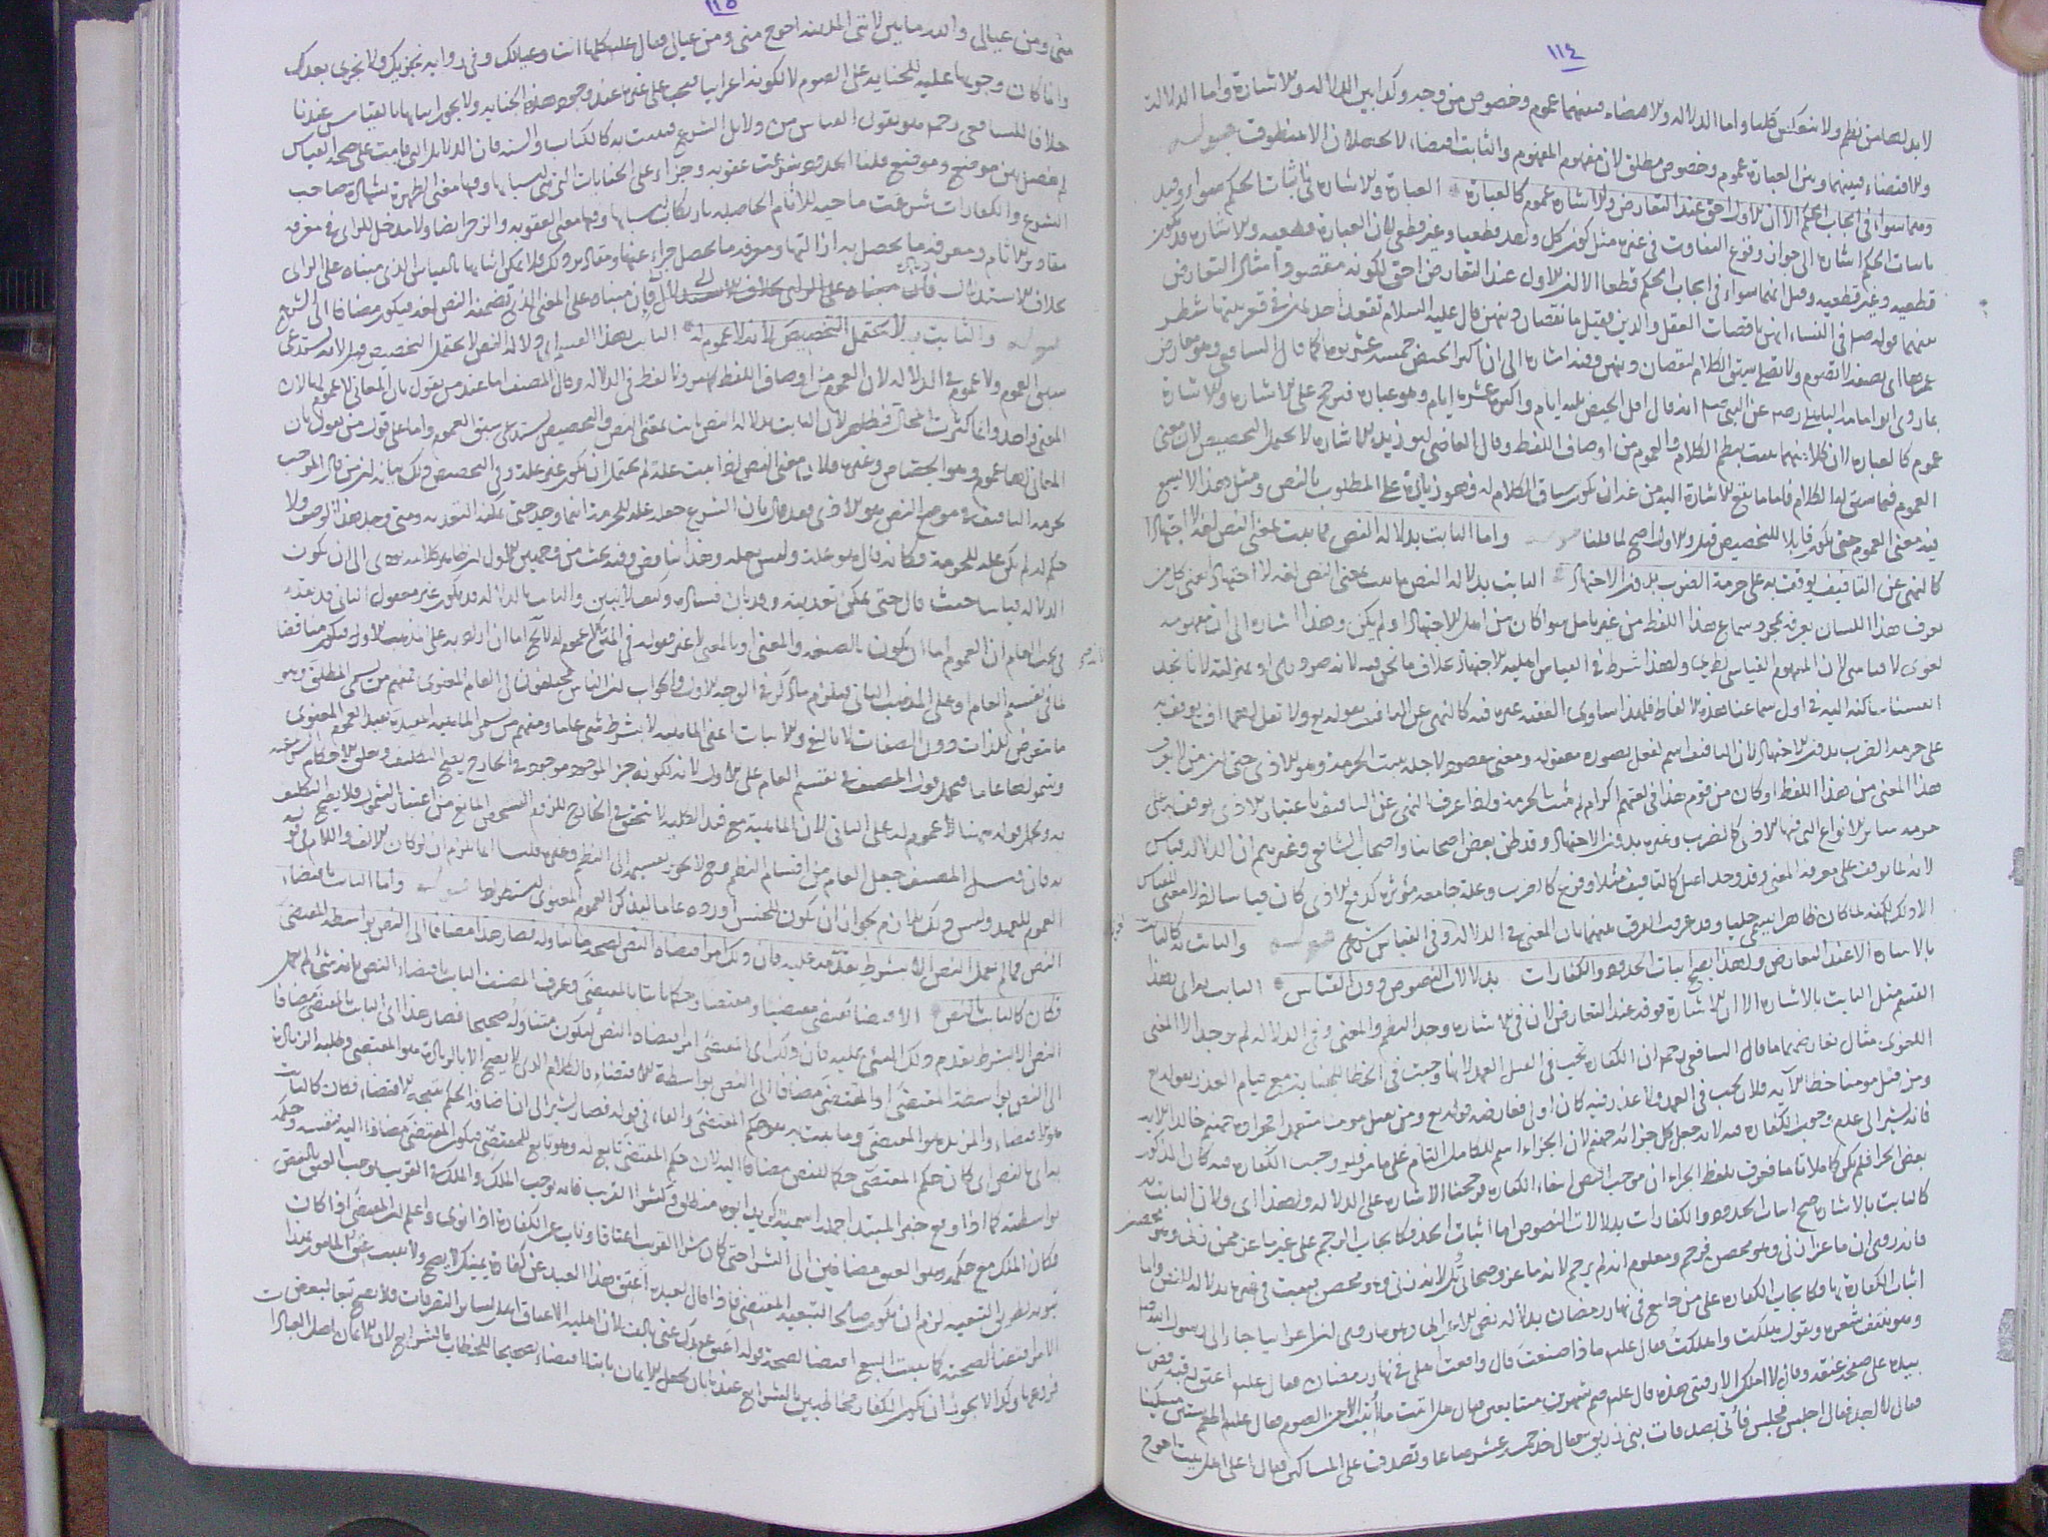 ١١٤
لا بد لهما من نظم ولا ينعكس كليا واما الدلالة والاقتضاء فبينهما عموم وخصوص من وجه وكذا بين الدلالة والاشارة واما الدلالة
والاقتضاء فبينهما وبين العبارة عموم وخصوص مطلق لان مفهوم المفهوم والثابت اقتضاء لا يحصلان الا بمنطوق
وهما سواء في ايجاب الحكم الا ان الاول احق عند التعارض وللاشارة عموم كالعبارة العبارة والاشارة في اثبات الحكم سواء وقيد
باثبات الحكم اشارة الى جواز وقوع التفاوت في غيره مثل كون كل واحد قطعيا وغير قطعي لان العبارة قطعية والاشارة قد تكون
قطعية وغير قطعية وقيل انهما سواء في ايجاب الحكم قطعا الا ان الاول عند التعارض احق لكونه مقصودا مثال التعارض
بينهما قوله صلم في النساء انهن ناقصات العقل والدين فقيل ما نقصان دينهن قال عليه السلام تقعد احداهن في قعر بيتها شطر
عمرها اي نصفه لا تصوم ولا تصلي سيق الكلام لنقصان دينهن وفيه اشارة الى ان اكثر الحيض خمسة عشر يوما كما قال الشافعي وهو معارض
بما روى ابو امامة الباهلي رضه عن النبي صلم انه قال اقل الحيض ثلثة ايام واكثره عشرة ايام وهو عبارة فترجح على الاشارة وللاشارة
عموم كالعبارة لان كلا منهما ثبت بنظم الكلام والعموم من اوصاف اللفظ وقال القاضي ابو زيد الاشارة لا تحتمل التخصيص لان معنى
العموم فيما سيق له الكلام فاما ما يقع الاشارة اليه من غير ان يكون سياق الكلام له فهو زيادة على المطلوب بالنص ومثل هذا لا يسع
فيه معنى العموم حتى يكون قابلا للتخصيص قيل والاول اصح لما قلنا واما الثابت بدلالة النص فما ثبت بمعنى النص لغة لا اجتهادا
كالنهي عن التأفيف يوقف به على حرمة الضرب بدون الاجتهاد الثابت بدلالة النص ما ثبت بمعنى النص لغة لا اجتهادا يعني كل من
يعرف هذا اللسان يعرفه بمجرد سماع هذا اللفظ من غير تامل سواء كان من اهل الاجتهاد او لم يكن وهذا اشارة الى ان مفهومه
لغوي لا قياسي لان المفهوم القياسي نظري ولهذا شرط في القياس اهلية الاجتهاد بخلاف ما نحن فيه لانه ضروري او بمنزلته لانا نجد
انفسنا ساكنة اليه في اول سماعنا هذه الالفاظ فلهذا ساوى الفقيه غيره فيه كالنهي عن التأفيف بقوله تع ولا تقل لهما اف يوقف به
على حرمة الضرب بدون الاجتهاد لان التأفيف اسم لفعل بصورة معقولة ومعنى مقصود لاجله ثبت الحرمة وهو الاذى حتى ان من لا يعرف
هذا المعنى من هذا اللفظ او كان من قوم هذا في لغتهم اكرام لم يثبت الحرمة ولما عرف النهي عن التأفيف باعتبار الاذى يوقف به على
حرمة سائر الانواع التي فيها الاذى كالضرب وغيره بدون الاجتهاد وقد ظن بعض اصحابنا واصحاب الشافعي وغيرهم ان الدلالة قياس
لانه لما توقف على معرفة المعنى وقد وجد اصل كالتأفيف مثلا وفرع كالضرب وعلة جامعة مؤثرة كدفع الاذى كان قياسا اذ لا معنى للقياس
الا ذلك لكنه لما كان ظاهرا سمي جليا وقد عرفت الفرق بينهما بان المعنى في الدلالة لغوي وفي القياس شرعي والثابت به كالثابت
بالاشارة الا عند التعارض ولهذا يصح اثبات الحدود والكفارات بدلالات النصوص دون القياس الثابت به اي بهذا
القسم مثل الثابت بالاشارة الا ان الاشارة فوقه عند التعارض لان في الاشارة وجد النظم والمعنى وفي الدلالة لم يوجد الا المعنى
اللغوي مثال تعارضهما ما قال الشافعي رحمه ان الكفارة تجب في القتل العمد لانها وجبت في الخطأ للجناية مع قيام العذر بقوله تع
ومن قتل مومنا خطأ الآية فلان تجب في العمد ولا عذر فيه كان اولى فعارضه قوله تع ومن يقتل مومنا متعمدا فجزاؤه جهنم خالدا لان
فانه يشير الى عدم وجوب الكفارة فيه لانه جعل كل جزائه جهنم لان الجزاء اسم للكامل التام على ما مر فلو وجبت الكفارة فيه كان المذكور
بعض الجزاء فلم يكن كاملا تاما فعرف بلفظ الجزاء ان من موجب النص انتفاء الكفارة فرجحنا الاشارة على الدلالة ولهذا اي ولان الثابت به
كالثابت بالاشارة صح اثبات الحدود والكفارات بدلالات النصوص اما اثبات الحد فكايجاب الرجم على غير ماعز ممن زنى وهو محصن
فانه روي ان ماعزا زنى وهو محصن فرجم ومعلوم انه لم يرجم لانه ماعز وصحابي بل لانه زنى وهو محصن فيثبت في غيره بدلالة النص واما
اثبات الكفارة بها فكايجاب الكفارة على من جامع في نهار رمضان بدلالة نص الاعرابي وهو ما روي ان اعرابيا جاء الى رسول الله صلم
وهو ينتف شعره ويقول هلكت واهلكت فقال علم ماذا صنعت قال واقعت اهلي في نهار رمضان فقال علم اعتق رقبة فضرب
بيده على صفحة عنقه وقال لا املك الا رقبتي هذه قال علم صم شهرين متتابعين فقال هل اتيت ما اتيت الا من الصوم فقال علم اطعم ستين مسكينا
فقال لا اجد فقال اجلس فجلس فاتي بصدقات بني زريق فقال خذ خمسة عشر صاعا وتصدق على المساكين فقال اعلى اهل بيت احوج
١١٥
مني ومن عيالي والله ما بين لابتي المدينة احوج مني ومن عيالي فقال علم كلها انت وعيالك وفي رواية تجزيك ولا تجزي بعدك
وانما كان وجوبها عليه للجناية على الصوم لا لكونه اعرابيا فيجب على غيره عند وجود هذه الجناية ولا يجوز اثباتها بالقياس عندنا
خلافا للشافعي رحمه هو يقول القياس من دلائل الشرع فيثبت به كالكتاب والسنة فان الدلائل التي قامت على صحة القياس
لم تفصل بين موضع وموضع قلنا الحدود شرعت عقوبة وجزاء على الجنايات التي هي اسبابها وفيها معنى الطهرة بشهادة صاحب
الشرع والكفارات شرعت ماحية للآثام الحاصلة بارتكاب اسبابها وفيها معنى العقوبة والزجر ايضا ولا مدخل للراي في معرفة
مقادير الآثام ومعرفة ما يحصل به ازالتها ومعرفة ما يحصل جزاء عنها ومقادير ذلك فلا يمكن اثباتها بالقياس الذي مبناه على الراي
بخلاف الاستدلال فان مبناه على المعنى الذي تضمنه النص لغة فيكون مضافا الى الشرع
والثابت به لا يحتمل التخصيص لانه لا عموم له الثابت بهذا القسم اي دلالة النص لا يحتمل التخصيص قيل لانه يستدعي
سبق العموم ولا عموم في الدلالة لان العموم من اوصاف اللفظ ولا لفظ في الدلالة وقال المصنف اما عند من يقول بان المعاني لا عموم لها لان
المعنى واحد وانما كثرت المحال فظاهر لان الثابت بدلالة النص ثابت بمعنى النص والتخصيص يستدعي سبق العموم واما على قول من يقول بان
المعاني لها عموم وهو الجصاص وغيره فلان معنى النص اذا ثبت علة لم يحتمل ان يكون غير علة وفي التخصيص ذلك بيانه ان من قال الموجب
لحرمة التأفيف في موضع النص هو الاذى فقد قال بان الشرع جعله علة للحرمة اينما وجد حتى يمكنه التعدية ومتى وجد هذا الوصف ولا
حكم له لم يكن علة للحرمة فكانه قال هو علة وليس بعلة وهذا تناقض وفيه بحث من وجهين الاول
الدلالة قياسا حيث قال حتى يمكن تعديته وقد بان فساده
في بحث العام ان العموم اما ان يكون بالصيغة والمعنى او بالمعنى لا غير فقوله في المتن لا عموم له لا يخ اما ان اراد به على مذهب الاول فيكون مناقضا
لما في تقسيم العام او على المذهب الثاني فيلزم ما ذكر في الوجه الاول والجواب ان الناس مختلفون في العام المعنوي فمنهم من سمى المطلق وهو
ما يتعرض للذات دون الصفات لا بالنفي ولا بالاثبات اعني الماهية لا بشرط شئ عاما ومنهم من سمى الماهية المقيدة بقيد العموم المعنوي
وشمولها عاما فيحمل قول المصنف في تقسيم العام على الاول لانه لكونه جزء الموجود موجود في الخارج يصح التكليف
به ويحمل قوله ههنا لا عموم له على الثاني لان الماهية مع قيد الكلية لا تتحقق في الخارج للزوم التشخص المانع من اعتبار الشمول فلا يصح التكليف
به فان قيل المصنف جعل العام من اقسام النظم وح لا يجوز تقسيمه الى النظم وغيره قلنا انما يلزم ان لو كان الالف واللام في قوله
العموم للعهد وليس ذلك بلازم لجواز ان يكون للجنس واما الثابت باقتضاء
النص فما لم يعمل النص الا بشرط تقدمه عليه فان ذلك امر اقتضاه النص لصحة ما يتناوله فصار هذا مضافا الى النص بواسطة المقتضى
فكان كالثابت بالنص الاقتضاء يقتضي مقتضيا ومقتضى وحكما ثابتا بالمقتضى وعرف المصنف الثابت باقتضاء النص بانه شئ لم يعمل
النص الا بشرط تقدم ذلك الشئ عليه فان ذلك اي المقتضى امر اقتضاه النص ليكون متناوله صحيحا فصار هذا اي الثابت بالمقتضى مضافا
الى النص بواسطة المقتضى او المقتضى مضافا الى النص بواسطة الاقتضاء فالكلام الذي لا يصح الا بالزيادة هو المقتضي وطلبه الزيادة
هو الاقتضاء والمزيد هو المقتضى وما ثبت به هو حكم المقتضى والفاء في قوله فصار يشير الى ان اضافة الحكم نتيجة الاقتضاء فكان كالثابت
به اي بالنص اي كان حكم المقتضى حكما للنص مضافا اليه لان حكم المقتضى تابع له وهو تابع للمقتضي فيكون المقتضى مضافا اليه بنفسه وحكمه
بواسطته كما اذا وقع خبر المبتدا جملة اسمية كزيد ابوه منطلق وكشراء القريب فانه يوجب الملك والملك في القريب يوجب العتق بالنص
فكان الملك مع حكمه وهو العتق مضافين الى الشراء حتى كان شراء القريب اعتاقا وناب عن الكفارة اذا نوى واعلم ان المقتضى اذا كان
ثبوته بطريق التبعية لزم ان يكون صالحا لتبعية المقتضي فاذا قال لعبده اعتق هذا العبد عن كفارة يمينك لا يصح ولا يثبت عتق المامور بهذا
الامر اقتضاء لصحته كما يثبت البيع اقتضاء لصحة قوله اعتق عبدك عني بالف لان اهلية الاعتاق اصل لسائر التصرفات فلا يصح تبعا لبعض
فروعها وكذا لا يجوز ان يكون الكفار مخاطبين بالشرائع عندنا بان يجعل الايمان ثابتا اقتضاء تصحيحا للخطاب بالشرائع لان الايمان اصل العبادات